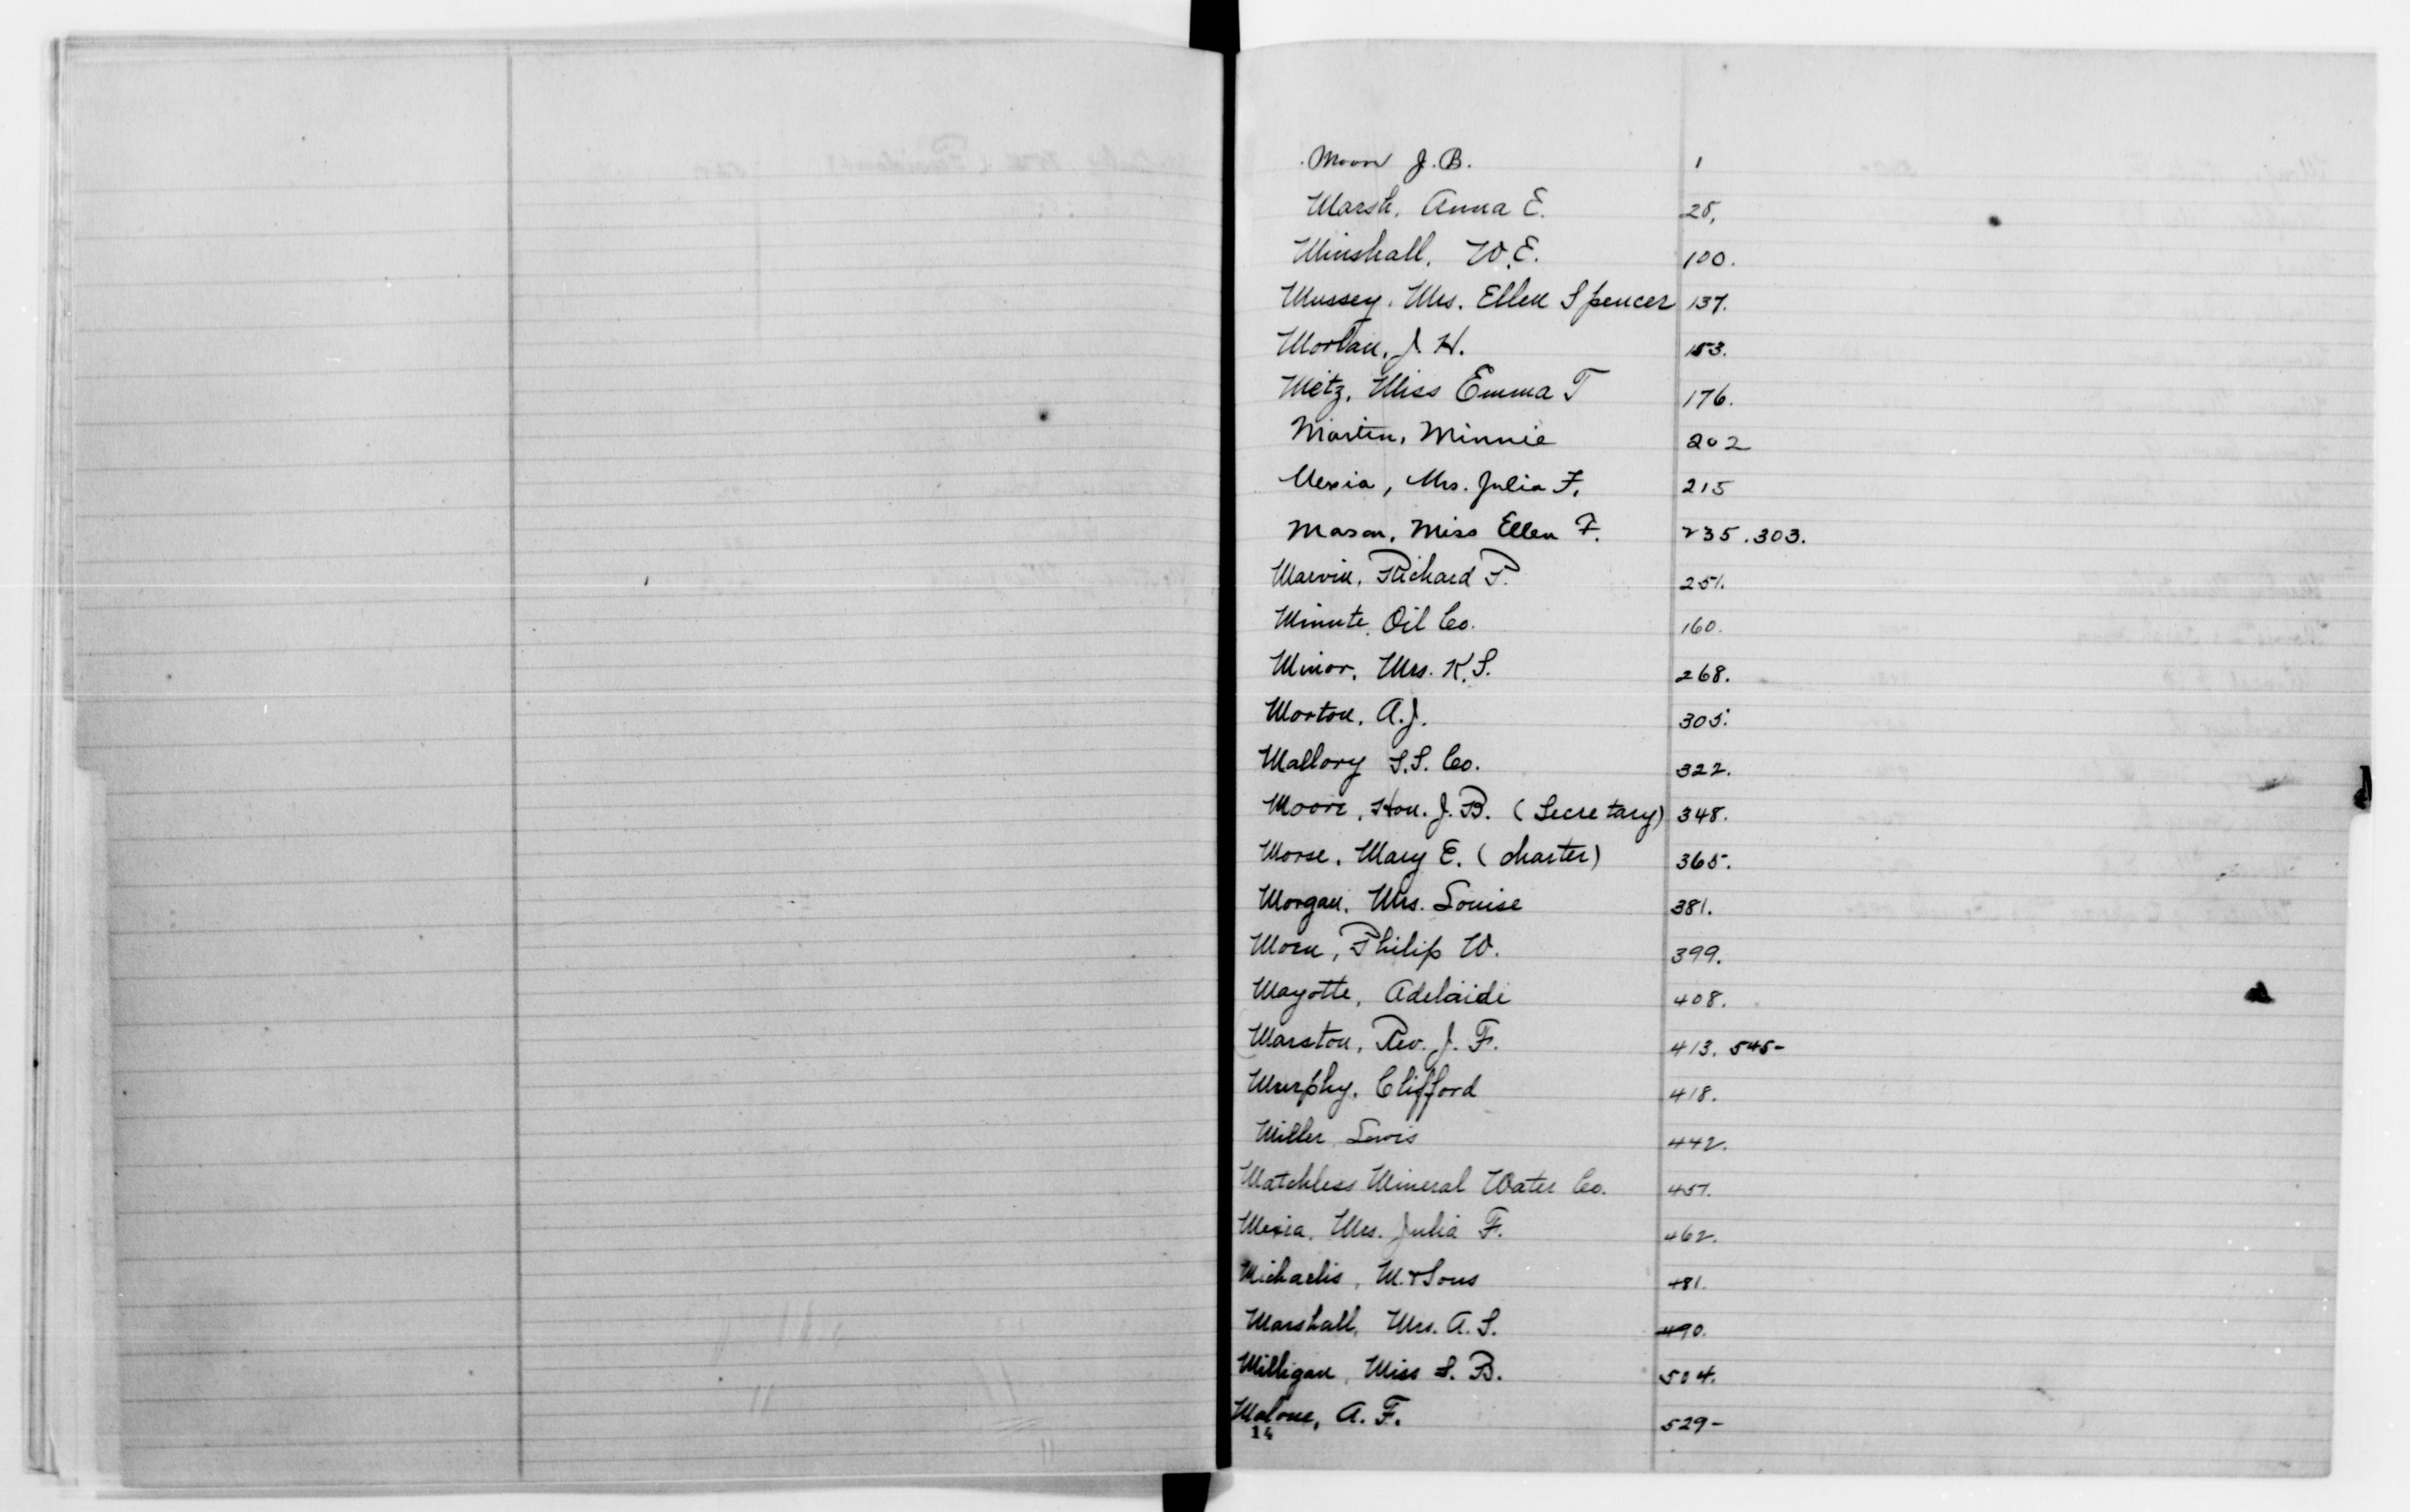 Moore J. B. 1
Marsh, Anna E. 28,
Minshall, W. E. 100.
Mussey, Mrs. Ellen Spencer 137.
Morlan, J. H. 153.
Metz, Miss Emma T 176.
Martin, Minnie 202
Mexia, Mrs. Julia F. 215
Mason, Miss Ellen F. 235. 303.
Marvin, Richard P. 251.
Minute Oil Co. 160.
Minor, Mrs. K. S. 268.
Morton, A. J. 305.
Mallory S. S. Co. 322.
Moore, Hon. J. B. (Secretary) 348.
Morse, Mary E. (charter) 365.
Morgan, Mrs. Louise 381.
Moen, Philip W. 399.
Mayotte, Adelaide 408.
Marston, Rev. J. F. 413. 545-
Murphy, Clifford 418.
Miller Lewis 442.
Matchless Mineral Water Co. 457.
Mexia, Mrs. Julia F. 462.
Michaelis, M. & Sons 481.
Marshall, Mrs. A. S. 490.
Milligan, Miss S. B. 504.
Malone, A. F. 529-
14